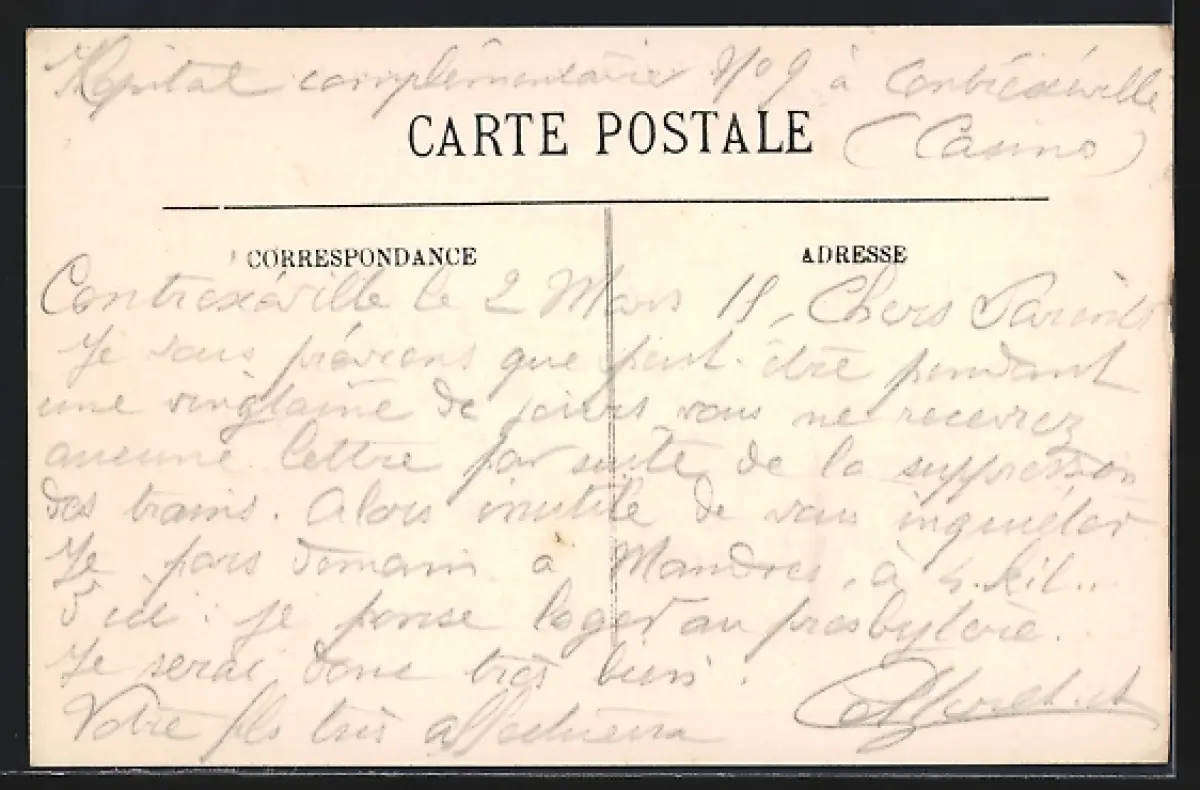 Hôpital complémentaire No 9 à Contrexéville
CARTE POSTALE
(Casino)
CORRESPONDANCE
ADRESSE
Contrexéville le 2 Mars 15, Chers Parents
Je vous préviens que peut-être pendant
une vingtaine de jours vous ne recevrez
aucune lettre par suite de la suppression
des trains. Alors inutile de vous inquiéter
Je pars demain à Mandres, à 4 kil..
d'ici. je pense loger au presbytère.
Je serai donc très bien.
Votre fils très affectueux